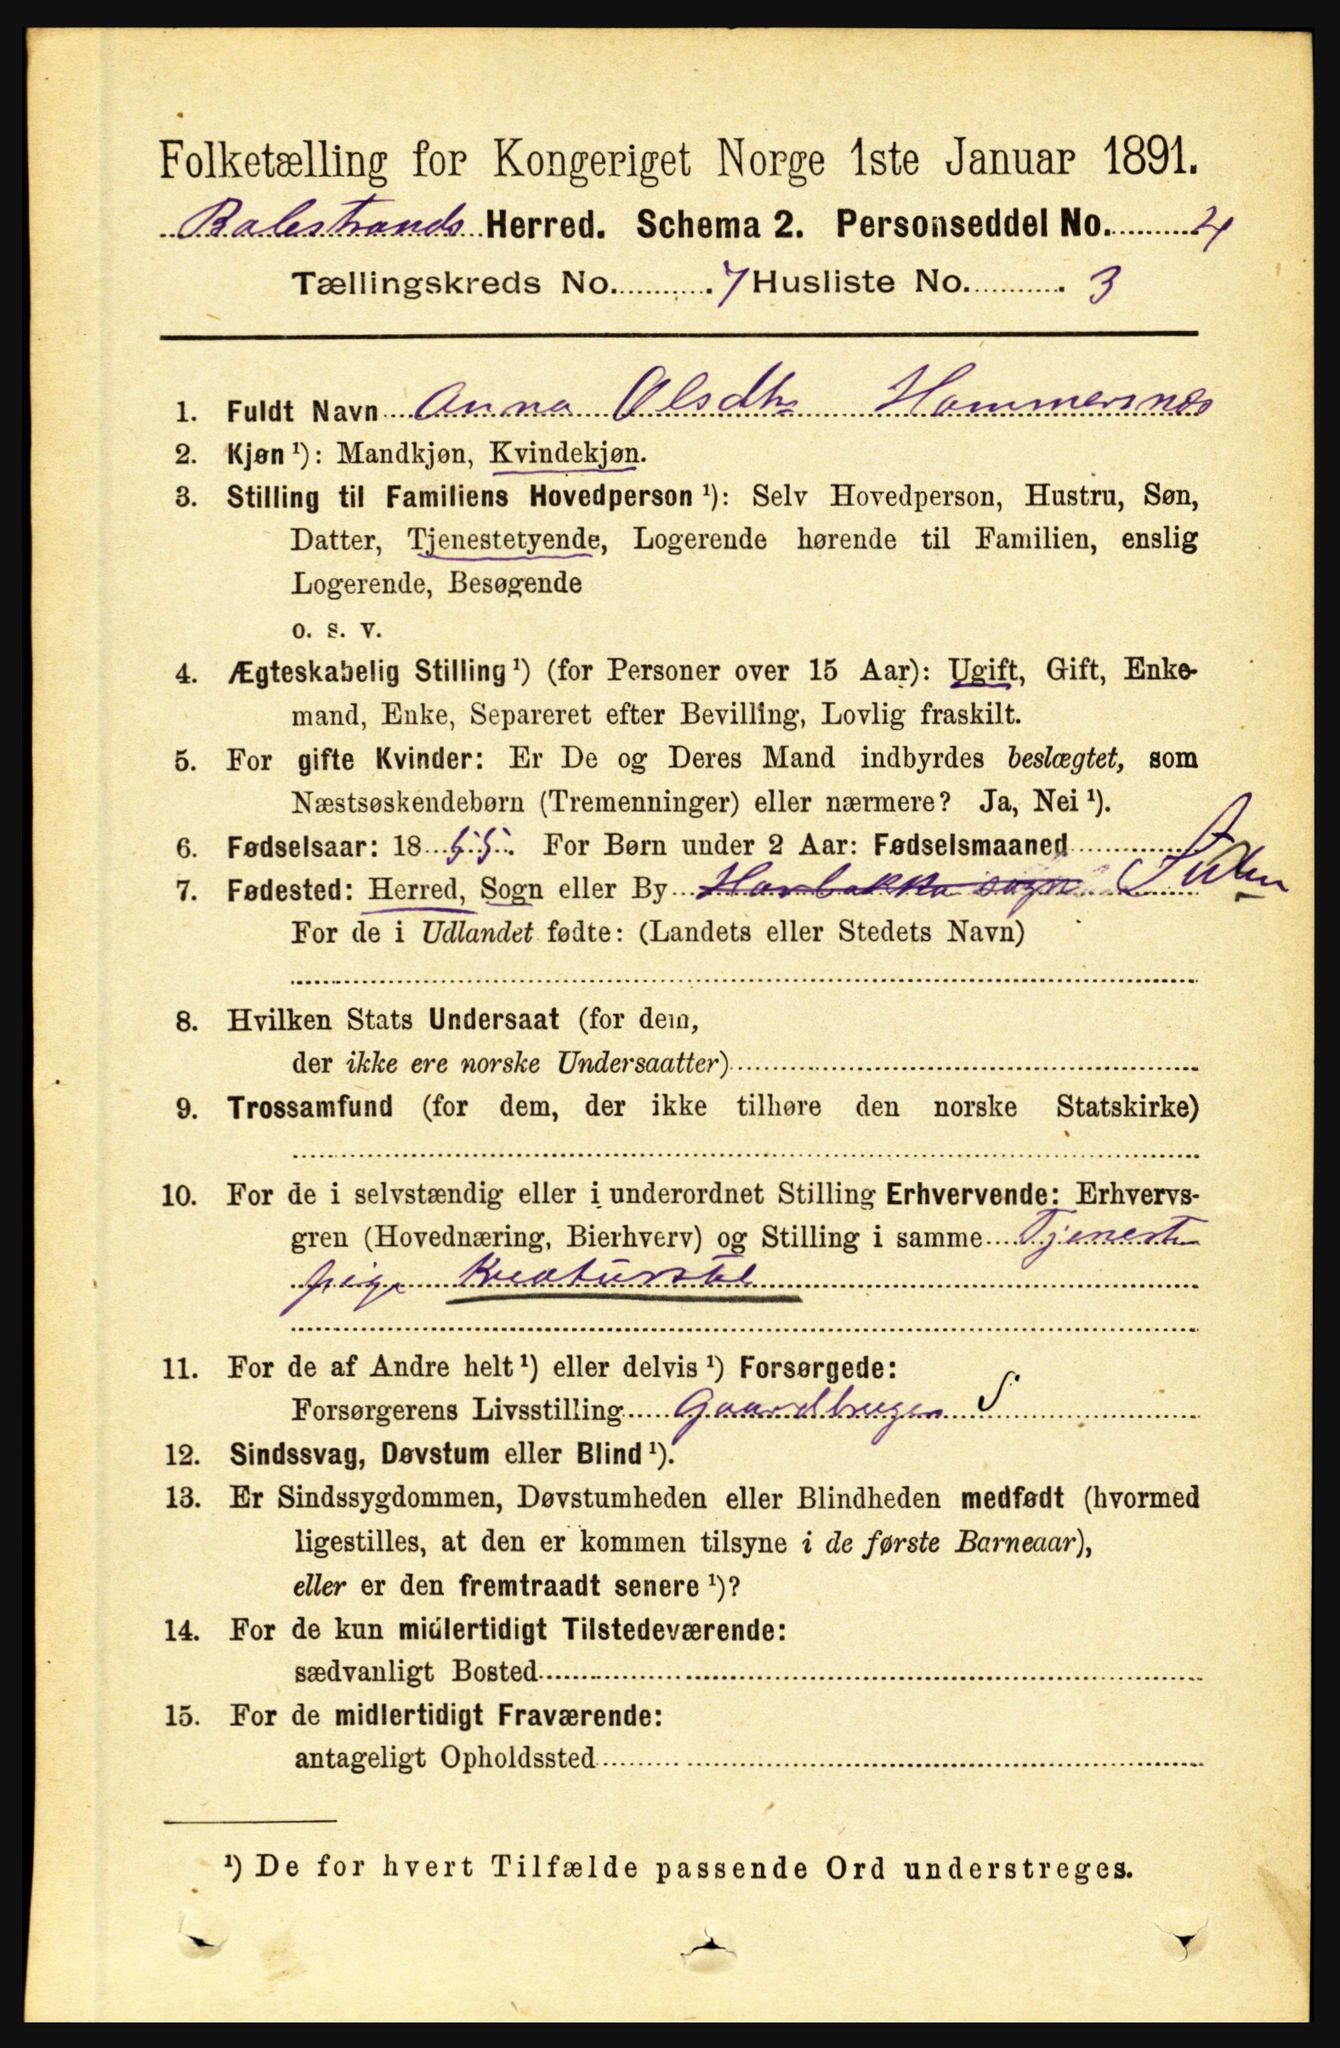 Folketælling for Kongeriget Norge 1ste Januar 1891.
Balestrands Herred. Schema 2. Personseddel No. 4
Tællingskreds No. 7 Husliste No. 3
1. Fuldt Navn Anna Olsdtr Hammersnes
2. Kjøn ¹): Mandkjøn, Kvindekjøn.
3. Stilling til Familiens Hovedperson ¹): Selv Hovedperson, Hustru, Søn,
Datter, Tjenestetyende, Logerende hørende til Familien, enslig
Logerende, Besøgende
o. s. v.
4. Ægteskabelig Stilling ¹) (for Personer over 15 Aar): Ugift, Gift, Enke-
mand, Enke, Separeret efter Bevilling, Lovlig fraskilt.
5. For gifte Kvinder: Er De og Deres Mand indbyrdes beslægtet, som
Næstsøskendebørn (Tremenninger) eller nærmere? Ja, Nei ¹).
6. Fødselsaar: 18 55. For Børn under 2 Aar: Fødselsmaaned
7. Fødested: Herred, Sogn eller By sogn
For de i Udlandet fødte: (Landets eller Stedets Navn)
8. Hvilken Stats Undersaat (for dem,
der ikke ere norske Undersaatter)
9. Trossamfund (for dem, der ikke tilhøre den norske Statskirke)
10. For de i selvstændig eller i underordnet Stilling Erhvervende: Erhvervs-
gren (Hovednæring, Bierhverv) og Stilling i samme Tjeneste
pige Kreaturstel
11. For de af Andre helt ¹) eller delvis ¹) Forsørgede:
Forsørgerens Livsstilling Gaardbruger S
12. Sindssvag, Døvstum eller Blind ¹).
13. Er Sindssygdommen, Døvstumheden eller Blindheden medfødt (hvormed
ligestilles, at den er kommen tilsyne i de første Barneaar),
eller er den fremtraadt senere ¹)?
14. For de kun midlertidigt Tilstedeværende:
sædvanligt Bosted
15. For de midlertidigt Fraværende:
antageligt Opholdssted
¹) De for hvert Tilfælde passende Ord understreges.